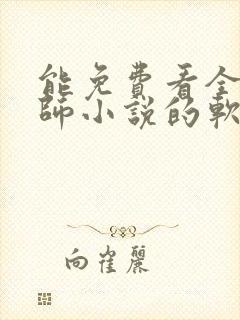 能免費看全
師小說的軟
向崔麗